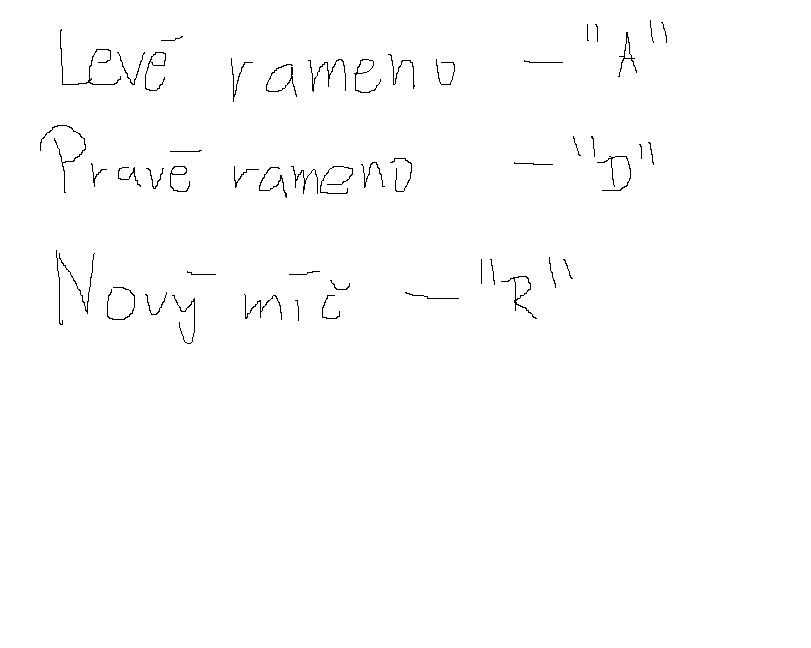 Levé rameno - "A"
Pravé rameno - "D"
Nový míč - "R"